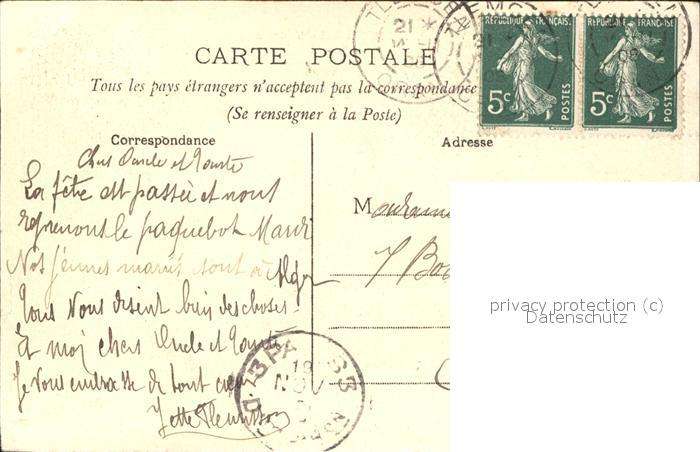 RÉPUBLIQUE FRANÇAISE
RÉPUBLIQUE FRANÇAISE
21
5c
POSTES
5c
POSTES
CARTE POSTALE
Tous les pays étrangers n'acceptent pas la correspondance
(Se renseigner à la Poste)
Correspondance
Adresse
Chers Oncle et Tante
La fête est passée et nous
reprenons le paquebot Mardi
Nos jeunes mariés sont à Alger
Tous Vous disent bien des choses
Et moi chers Oncle et Tante
Je Vous embrasse de tout cœur
Madame
privacy protection (c)
Datenschutz
18
NOV